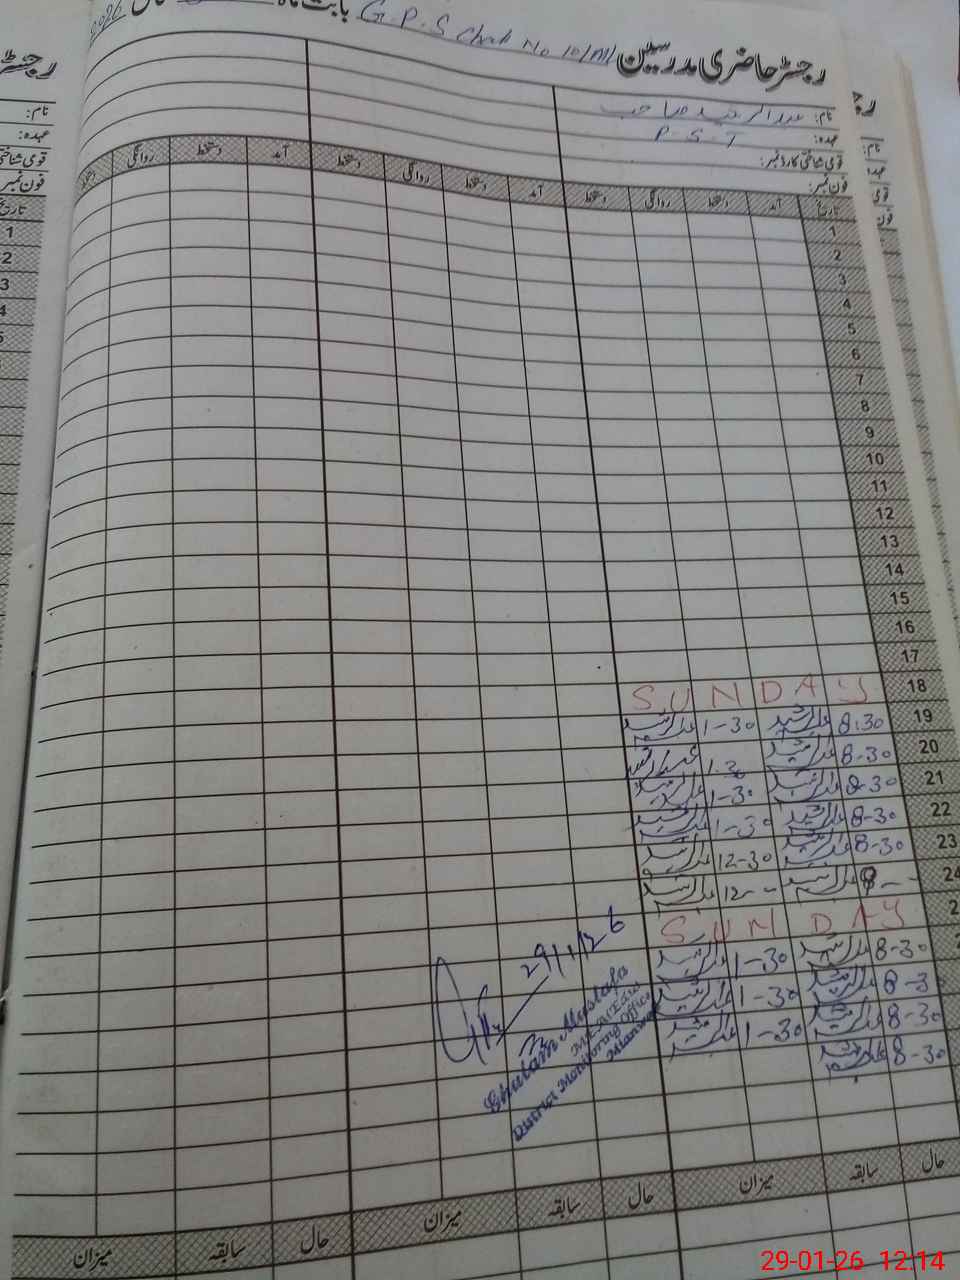 رجسٹر حاضری مدرسین G.P.S Chak No 10/ بابت ماہ سال 2026
نام: عبدالرشید صاحب
عہدہ: P-S-T
قومی شناختی کارڈ نمبر:
فون نمبر:
تاریخ آمد دستخط روانگی دستخط آمد دستخط روانگی دستخط آمد دستخط روانگی دستخط
1
2
3
4
5
6
7
8
9
10
11
12
13
14
15
16
17
18 SUNDAY
19 8:30 عبدالرشید 1-30 عبدالرشید
20 8-30 عبدالرشید عبدالرشید
21 8-30 عبدالرشید 1-30 عبدالرشید
22 8-30 عبدالرشید 1-30 عبدالرشید
23 8-30 عبدالرشید 12-30 عبدالرشید
24 8-- عبدالرشید 12-- عبدالرشید
SUNDAY
8-30 عبدالرشید 1-30 عبدالرشید
8-3 عبدالرشید 1-30 عبدالرشید
8-30 عبدالرشید 1-30 عبدالرشید
8-30 عبدالرشید
29/1/26
Ghulam Mustafa
District Monitoring Office
Mianwali
حال سابقہ میزان حال سابقہ میزان حال سابقہ میزان
رجسٹر
نام:
عہدہ:
قومی شناختی
فون نمبر
تاریخ
1
2
3
4
5
نام:
عہدہ
قومی
فون
29-01-26 12:14